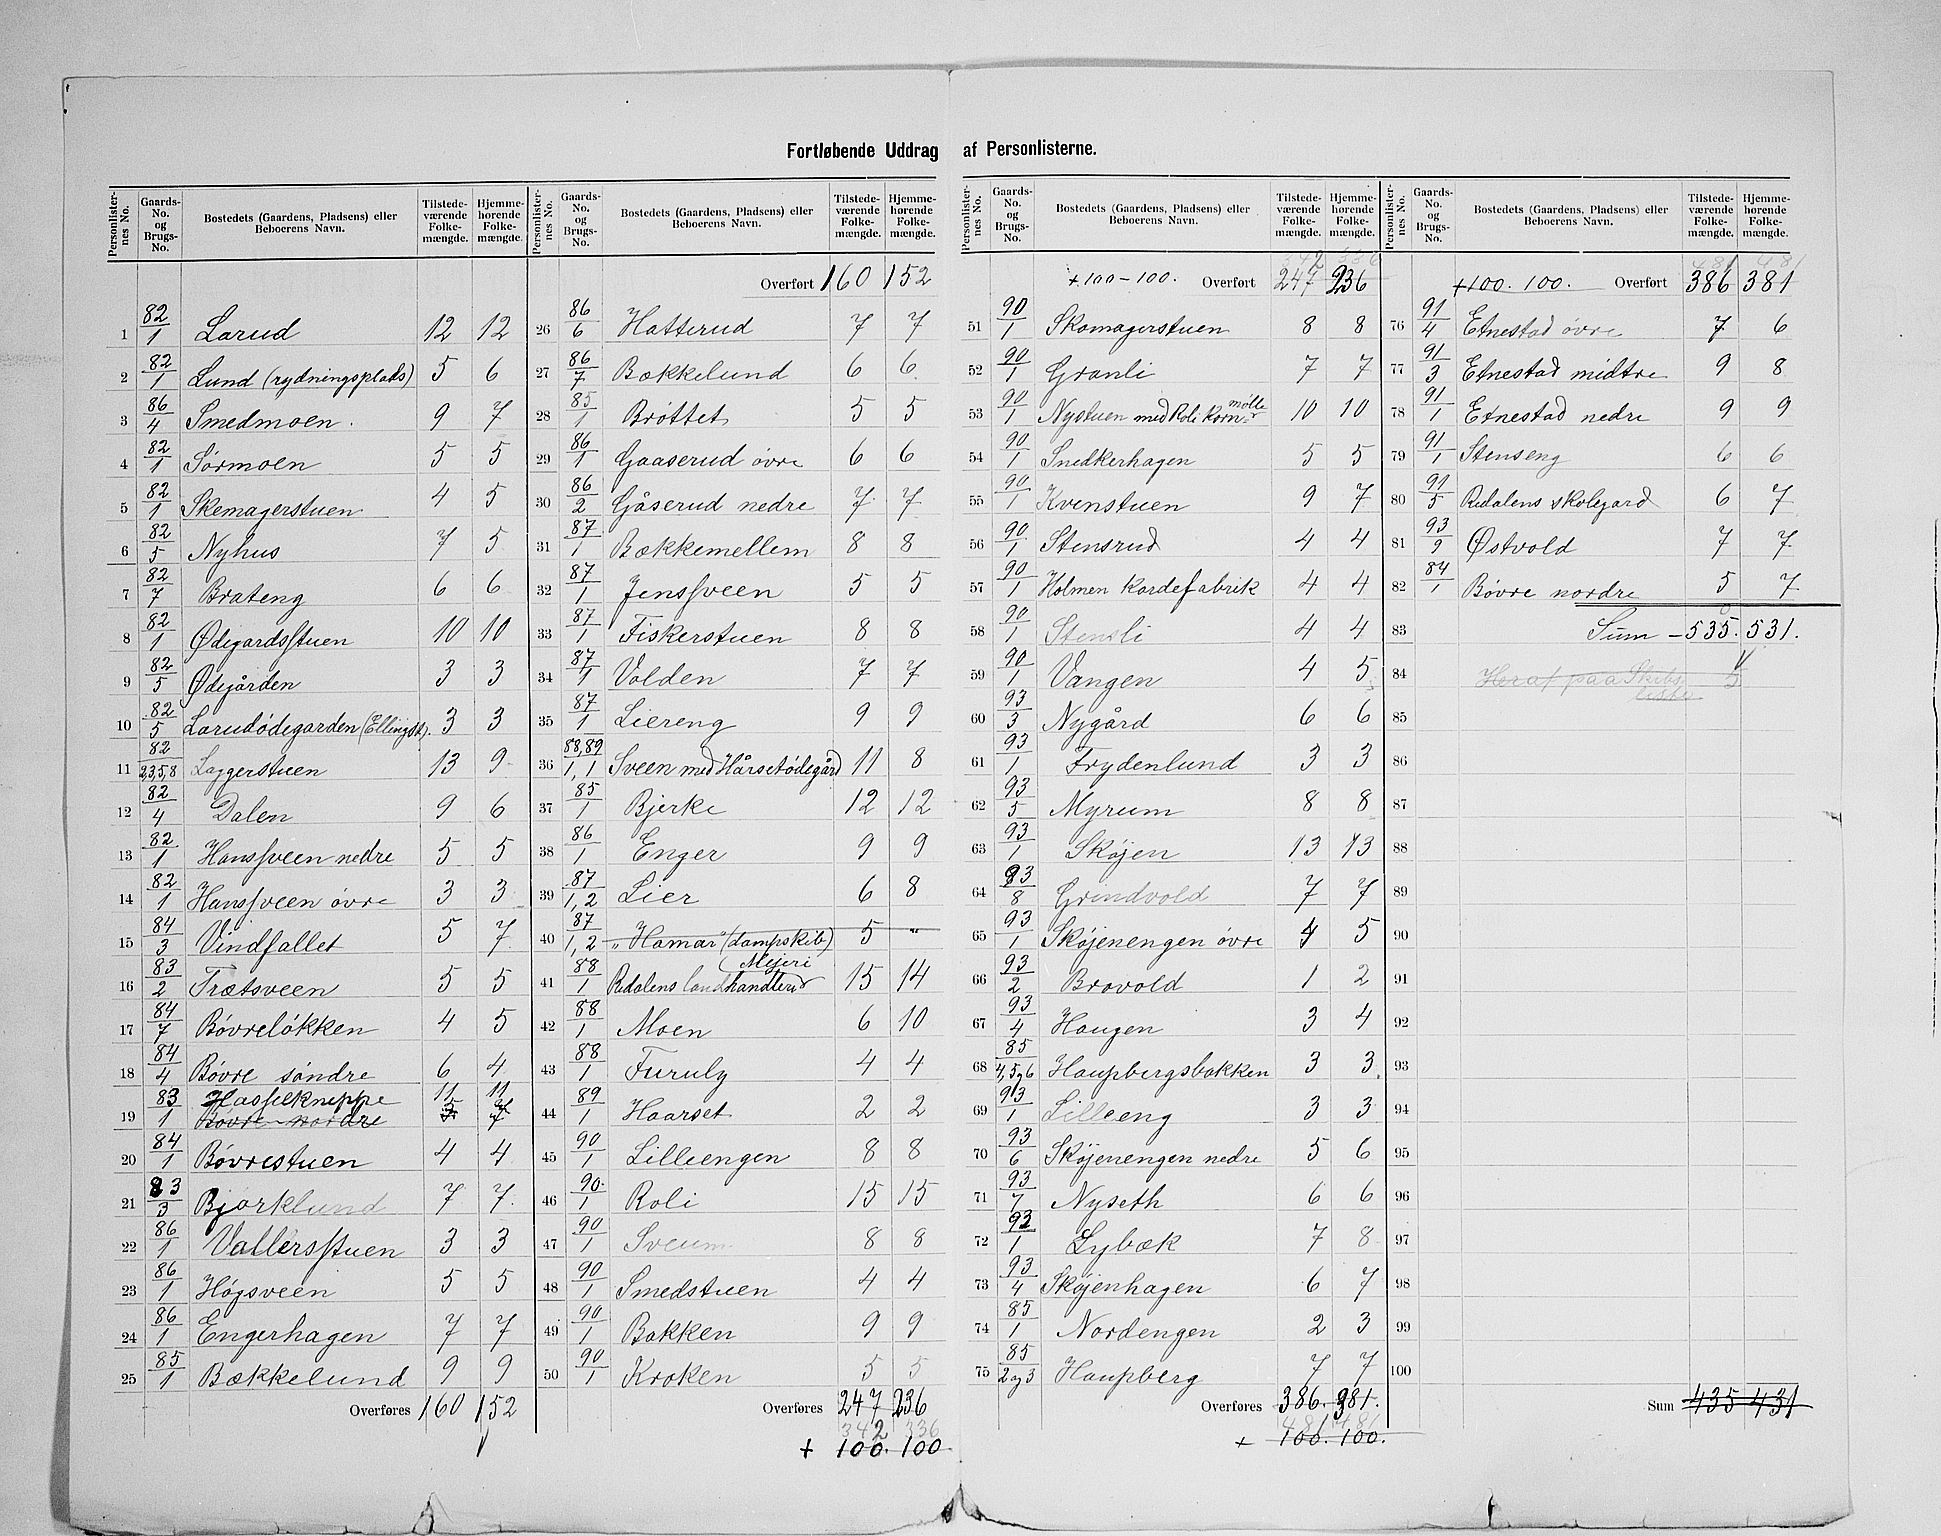 Fortløbende Uddrag af Personlisterne.
Personlisternes No. | Gaards-No. og Brugs-No. | Bostedets (Gaardens, Pladsens) eller Beboerens Navn. | Tilstedeværende Folkemængde. | Hjemmehørende Folkemængde.
1 82/1 Larud 12 12
2 82/1 Lund (rydningsplads) 5 6
3 86/4 Smedmoen. 9 7
4 82/1 Sørmoen 5 5
5 82/1 Skomagerstuen 4 5
6 82/5 Nyhus 7 5
7 82/7 Brateng 6 6
8 82/1 Ødegardsstuen 10 10
9 82/5 Ødegården 3 3
10 82/5 Larudødegarden (Ellingst). 3 3
11 82/2,3,5,8 Laggerstuen 13 9
12 82/4 Dalen 9 6
13 82/1 Hanssveen nedre 5 5
14 82/1 Hanssveen øvre 3 3
15 84/3 Vindfallet 5 7
16 83/2 Trætsveen 5 5
17 84/7 Bøvreløkken 4 5
18 84/4 Bøvre søndre 6 4
19 83/1 Hasselknippe 11 11
Bøvre nordre 5 7
20 84/1 Bøvrestuen 4 4
21 83/3 Bjørklund 7 7
22 86/1 Vallersstuen 3 3
23 86/1 Høgsveen 5 5
24 86/1 Engerhagen 7 7
25 85/1 Bækkelund 9 9
Overføres 160 152
Personlisternes No. | Gaards-No. og Brugs-No. | Bostedets (Gaardens, Pladsens) eller Beboerens Navn. | Tilstedeværende Folkemængde. | Hjemmehørende Folkemængde.
Overført 160 152
26 86/6 Hatterud 7 7
27 86/7 Bækkelund 6 6
28 85/1 Brøttet 5 5
29 86/1 Gaaserud øvre 6 6
30 86/2 Gåserud nedre 7 7
31 87/1 Bækkemellem 8 8
32 87/1 Jenssveen 5 5
33 87/1 Fiskerstuen 8 8
34 87/1 Volden 7 7
35 87/1 Liereng 9 9
36 88,89/1,1 Sveen med Hårsetødegård 11 8
37 85/1 Bjerke 12 12
38 86/1 Enger 9 9
39 87/1,2 Lier 6 8
40 87/1,2 „Hamar" (dampskib) 5 "
41 88/1 Redalens landhandleri Mejeri 15 14
42 88/1 Moen 6 10
43 88/1 Furuly 4 4
44 89/1 Haarset 2 2
45 90/1 Lilleengen 8 8
46 90/1 Roli 15 15
47 90/1 Sveum 8 8
48 90/1 Smedstuen 4 4
49 90/1 Bakken 9 9
50 90/1 Kroken 5 5
Overføres 247 236
342 336
+ 100. 100
Personlisternes No. | Gaards-No. og Brugs-No. | Bostedets (Gaardens, Pladsens) eller Beboerens Navn. | Tilstedeværende Folkemængde. | Hjemmehørende Folkemængde.
342 336
+ 100 - 100. Overført 247 236
51 90/1 Skomagerstuen 8 8
52 90/1 Granli 7 7
53 90/1 Nystuen med Roli Kornmølle 10 10
54 90/1 Snedkerhagen 5 5
55 90/1 Kvenstuen 9 7
56 90/1 Stensrud 4 4
57 90/1 Holmen Kardefabrik 4 4
58 90/1 Stensli 4 4
59 90/1 Vangen 4 5
60 93/3 Nygård 6 6
61 93/1 Frydenlund 3 3
62 93/5 Myrum 8 8
63 93/1 Skøjen 13 13
64 93/8 Grindvold 7 7
65 93/1 Skøjenengen øvre 4 5
66 93/2 Brovold 1 2
67 93/4 Haugen 3 4
68 85/4,5og6 Haupbergsbakken 3 3
69 93/1 Lilleeng 3 3
70 93/6 Skøjenengen nedre 5 6
71 93/7 Nyseth 6 6
72 93/1 Lybæk 7 8
73 93/4 Skøjenhagen 6 7
74 85/1 Nordengen 2 3
75 85/2og3 Haupberg 7 7
Overføres 386. 381.
481 486
+ 100. 100.
Personlisternes No. | Gaards-No. og Brugs-No. | Bostedets (Gaardens, Pladsens) eller Beboerens Navn. | Tilstedeværende Folkemængde. | Hjemmehørende Folkemængde.
481 481
+100. 100. Overført 386 381
76 91/4 Etnestad øvre 7 6
77 91/3 Etnestad midtre 9 8
78 91/1 Etnestad nedre 9 9
79 91/1 Stenseng 6 6
80 91/5 Redalens skolegard 6 7
81 93/9 Østvold 7 7
82 84/1 Bøvre nordre 5 7
83 Sum - 535. 531.
84 Heraf paa Skibsliste 5
85
86
87
88
89
90
91
92
93
94
95
96
97
98
99
100
Sum 435 431